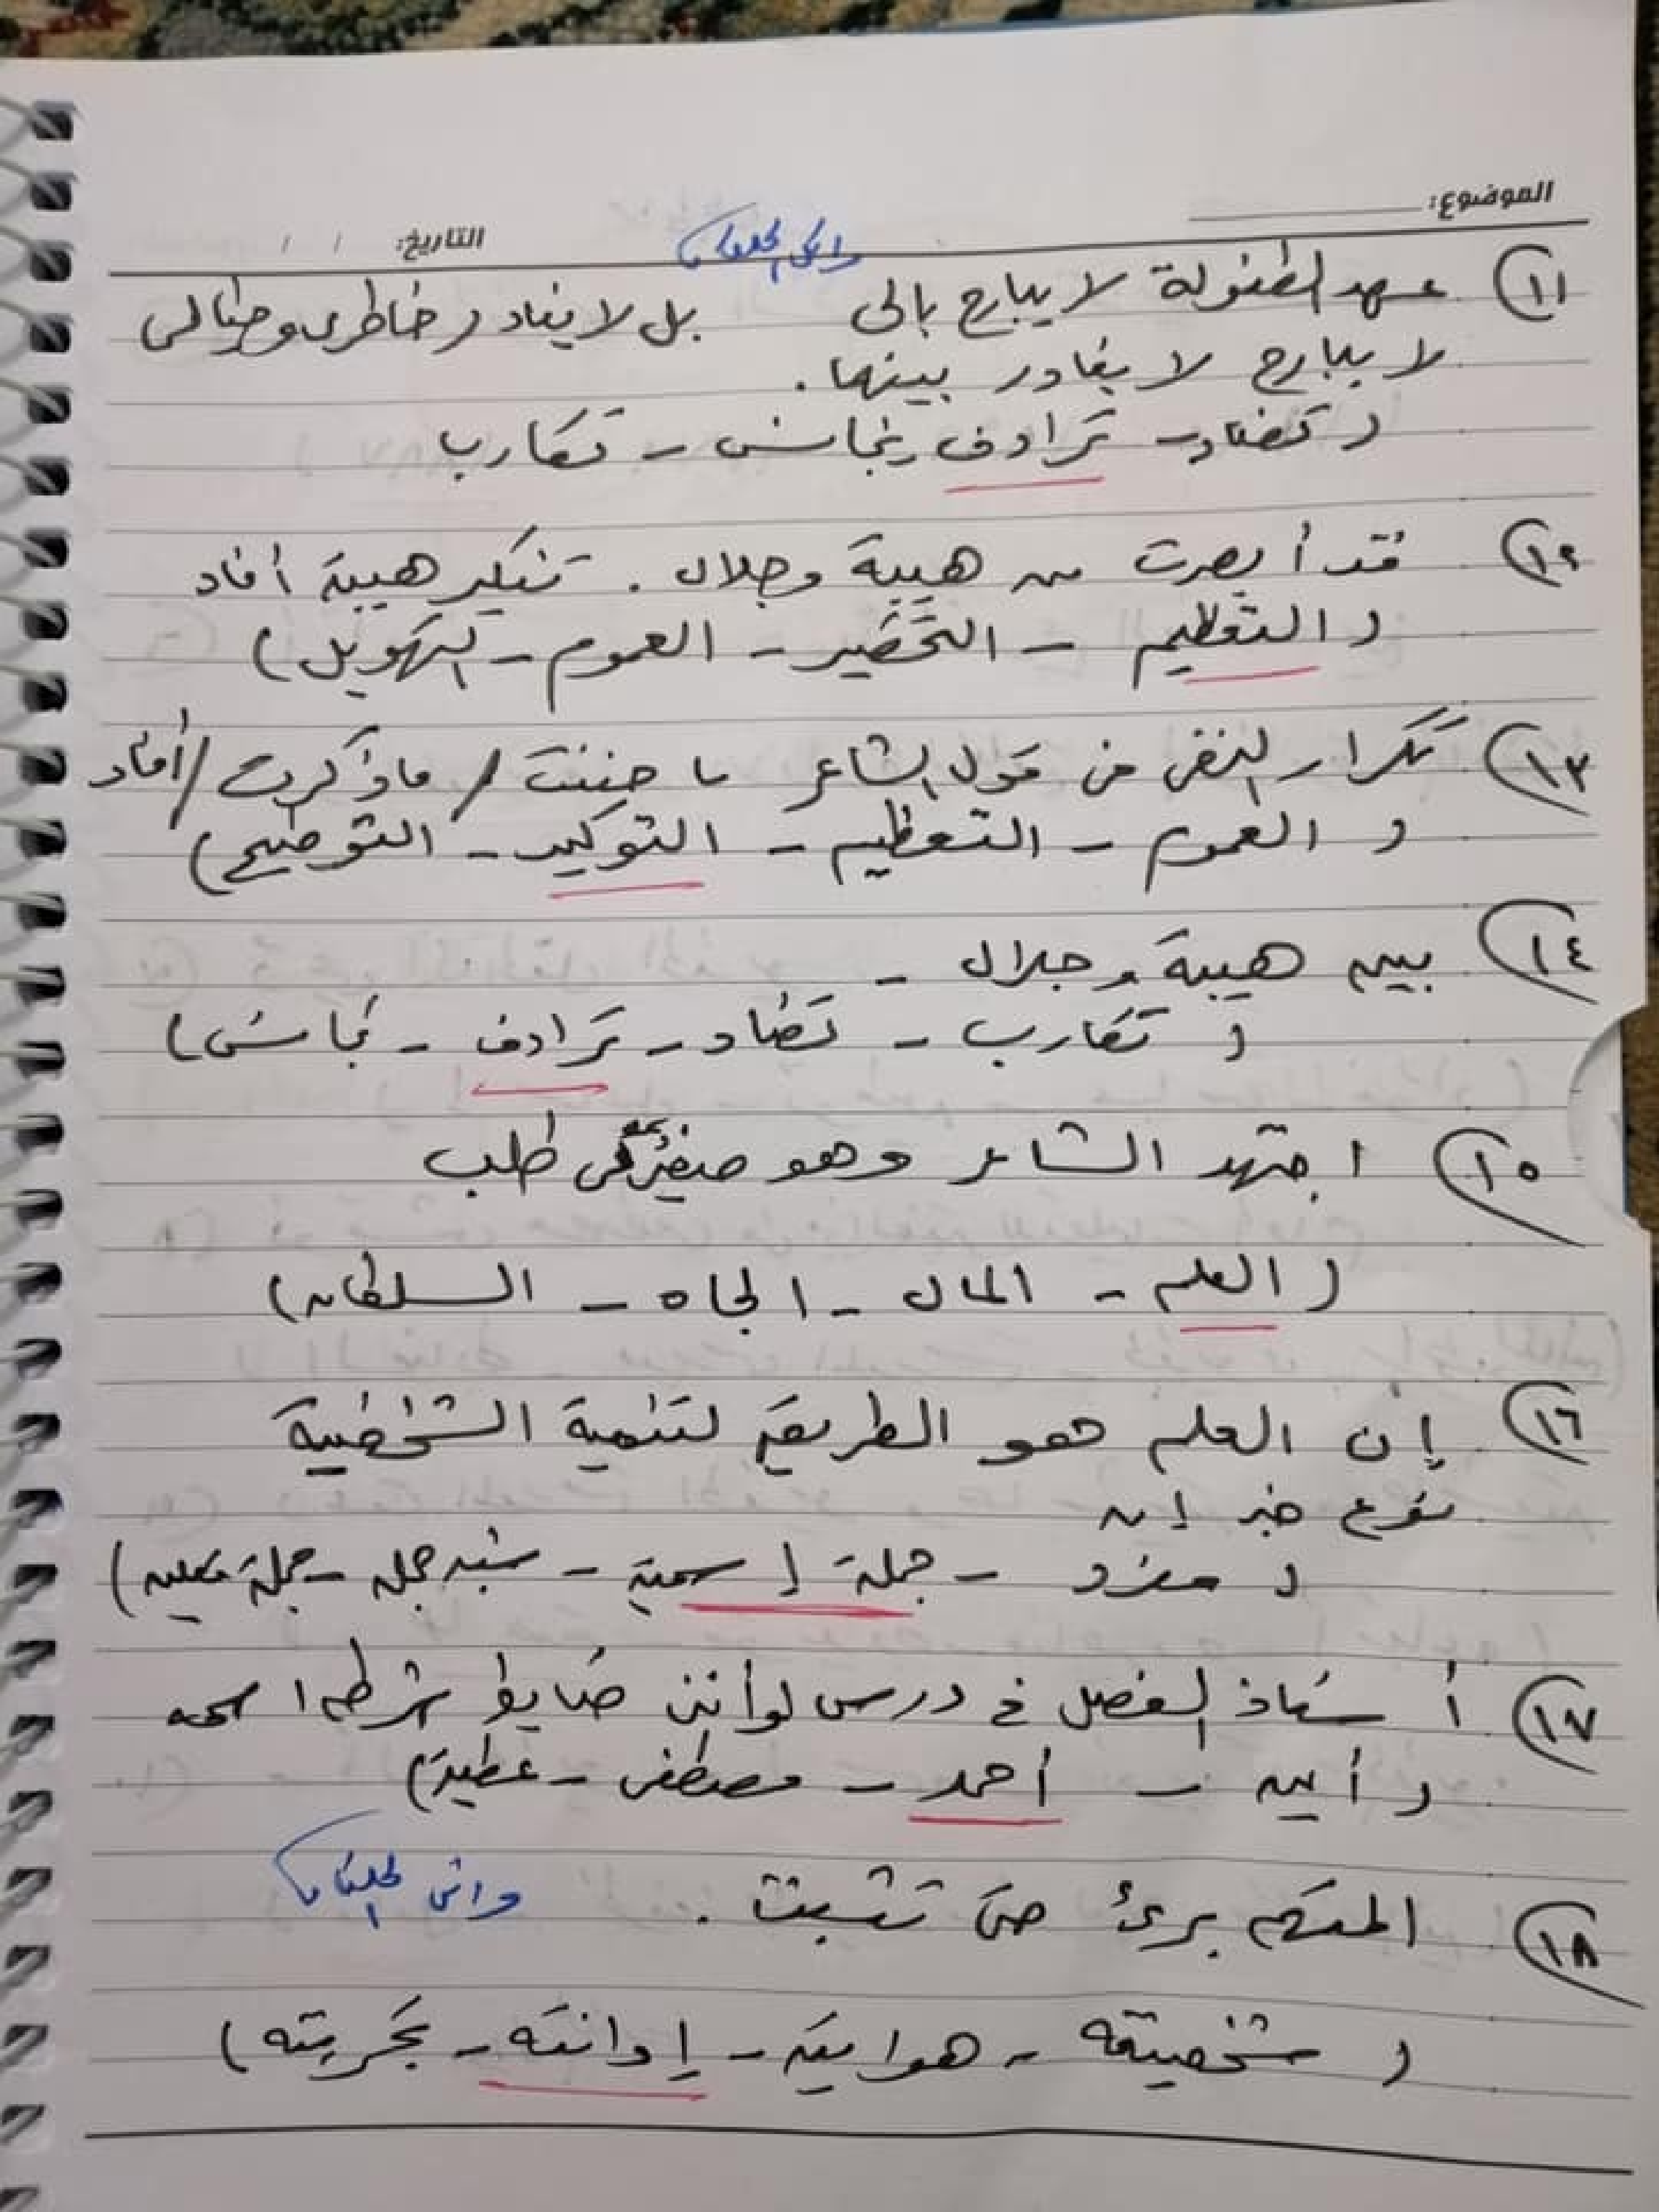 الموضوع:
التاريخ: / /
١١) عهد الطفولة لا يبارح بالى بل لا يغادر خاطرى وخيالى
لا يبارح لا يغادر بينهما.
( تضاد - ترادف - تجانس - تقارب
١٢) قد أبصرت من هيبة وجلال. تنكير هيبة أفاد
( التعظيم - التحقير - العموم - التهويل)
١٣) تكرار النفى فى قول الشاعر ما جننت / ما ذكرت / أفاد
( العموم - التعظيم - التوكيد - التوضيح)
١٤) بين هيبة وجلال -
( تقارب - تضاد - ترادف - تجانس)
١٥) اجتهد الشاعر وهو صغير فى طلب
( العلم - المال - الجاه - السلطان)
١٦) إن العلم هو الطريق لتنمية الشخصية
نوع خبر إن
( مفرد - جملة إسمية - شبه جمله - جملة فعليه)
١٧) أستاذ الفصل فى درس لو أننى ضابط شرطه اسمه
( أيمن - أحمد - مصطفى - عطية)
١٨) المتهم برئ حتى تثبت .
( شخصيته - هوايته - إدانته - تجربته)